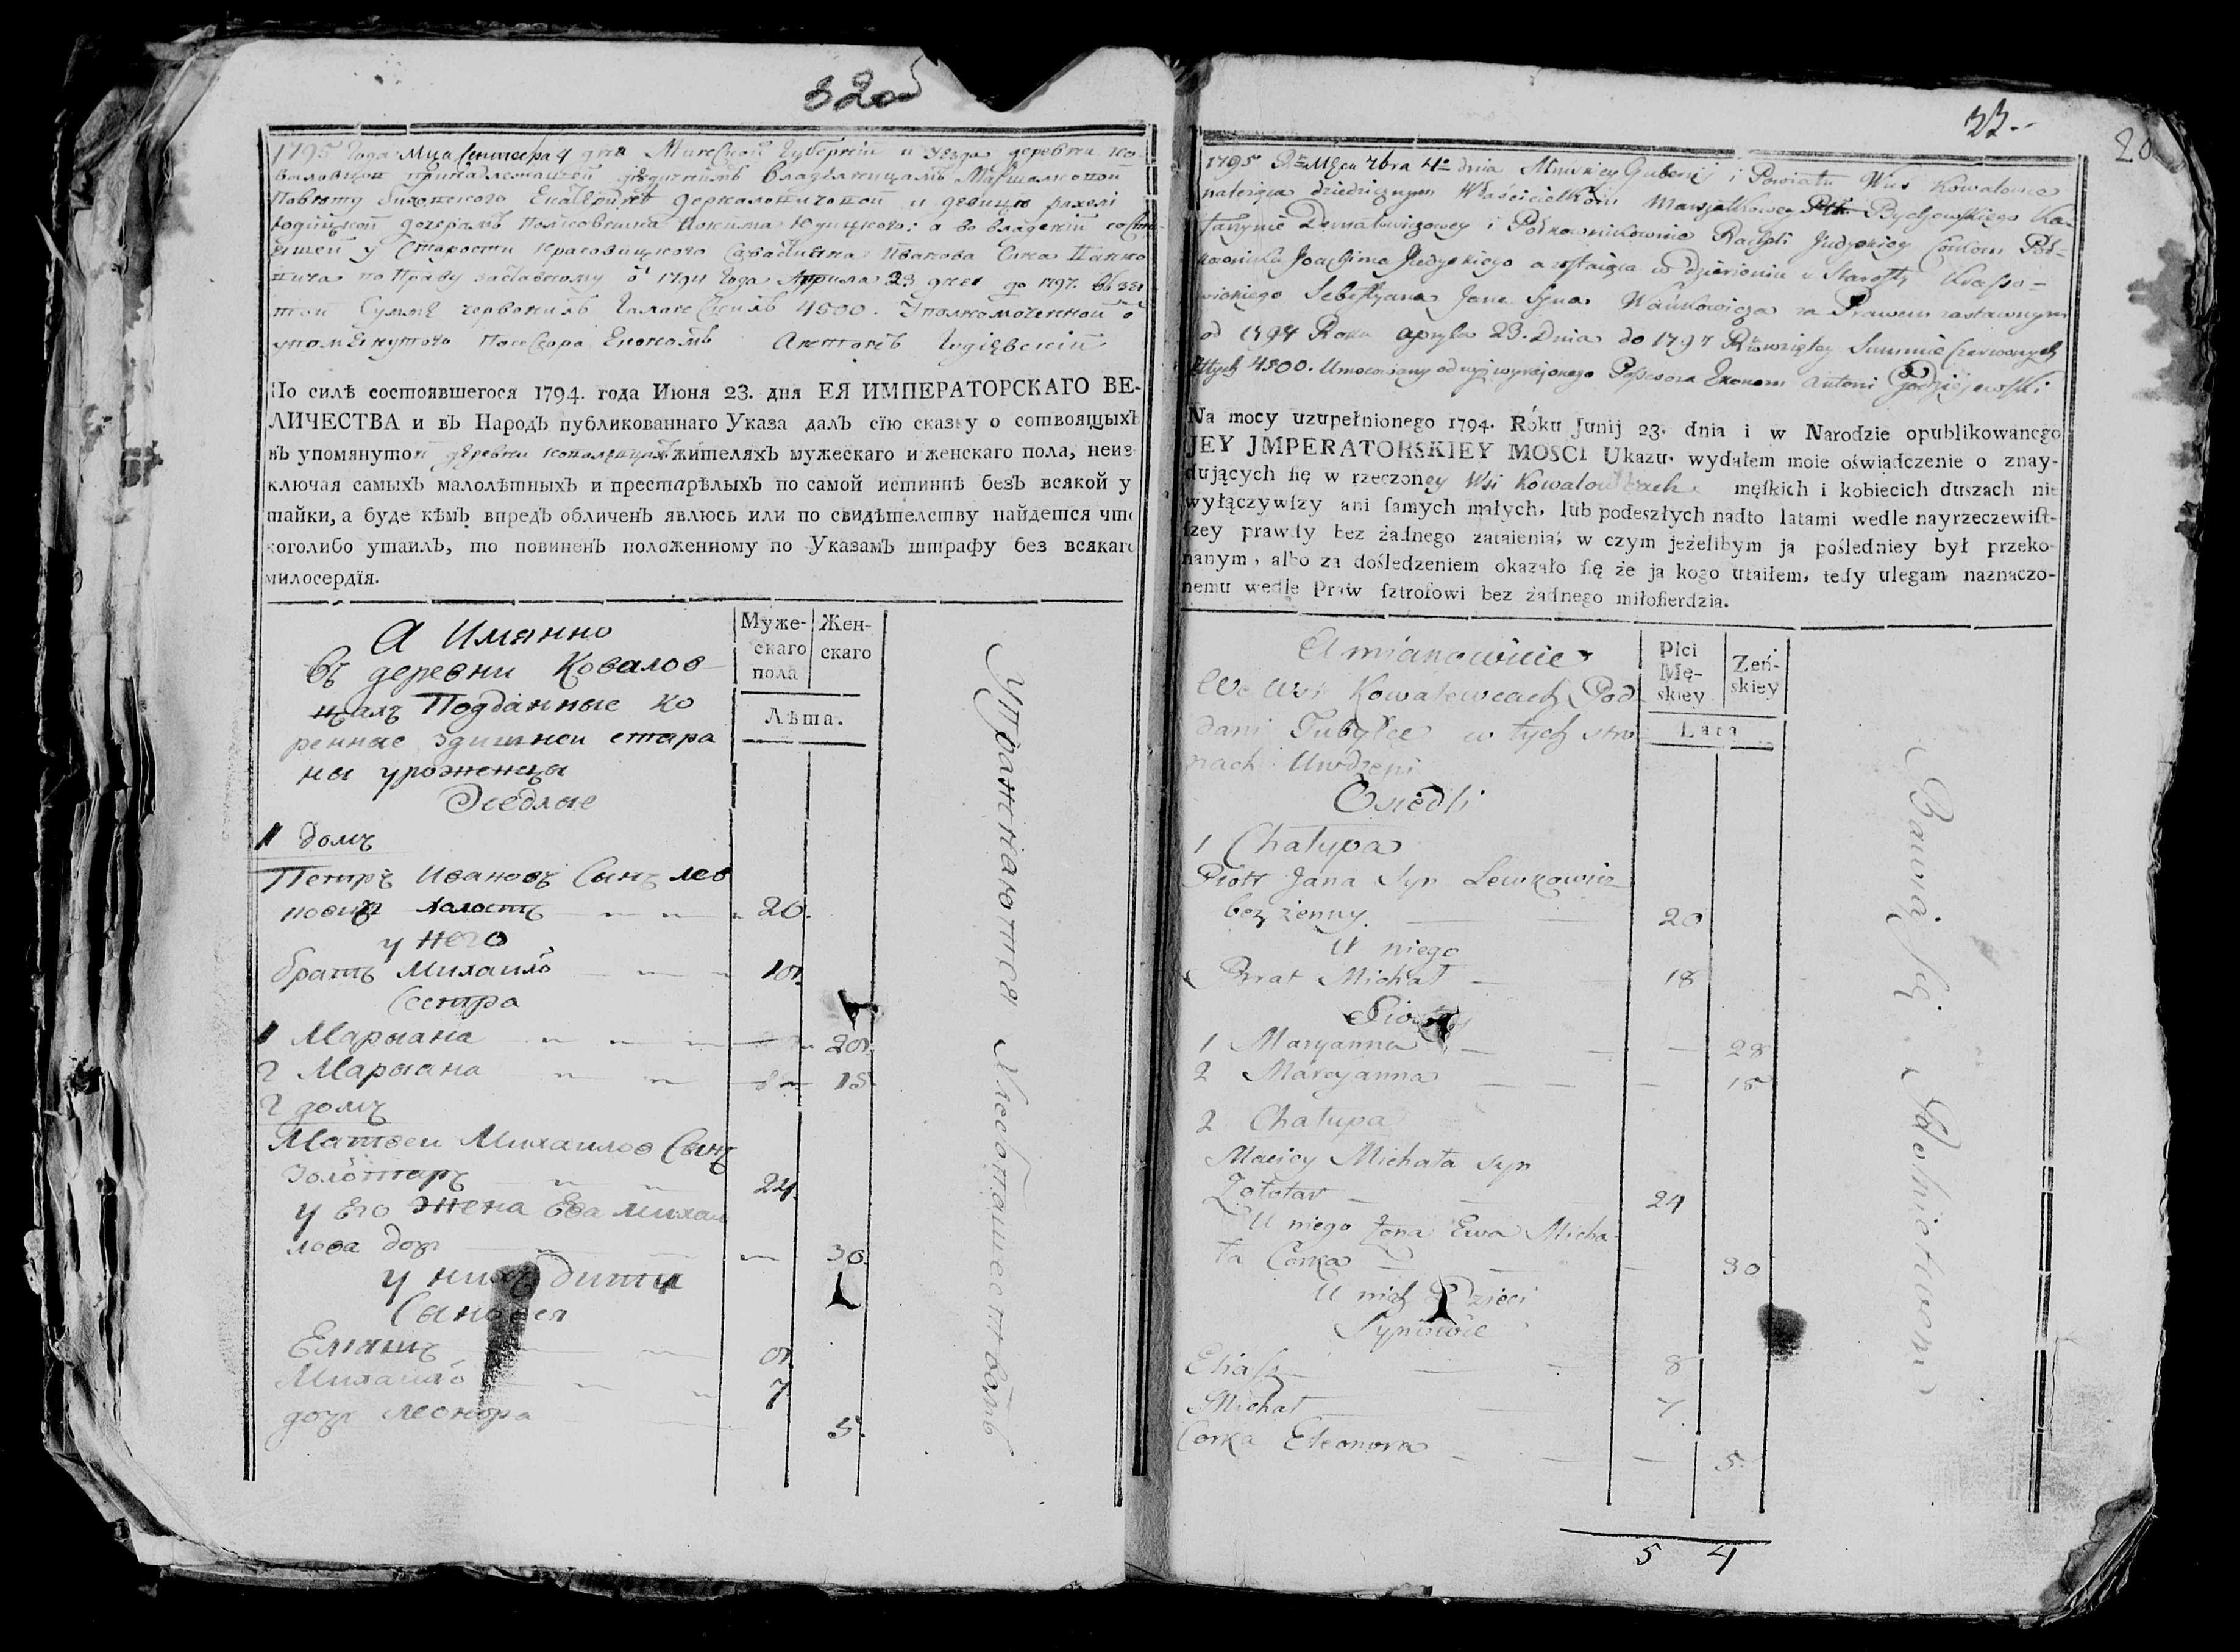 32об
1795 Года Мца Сентебра 4 дня Минской Губернiи и Уезда деревни Ко-
валовцоп принадлежащей владѣлницамъ Маршалковой
Повѣту Екатеринѣ и девицѣ рахели
дочерамъ Полковника Иокима Юдицкого: а во владенiи состо-
ящей у Старосты Красовицкого Иванова Сына Ванко
вича по Праву заставному о 1794 Года Априла 23 дня до 1797. въ
той Суммѣ червонихъ Галанскихъ 4500. Уполномоченной о
упомянутого Поссесора Економъ Антонъ
По силѣ состоявшегося 1794. года Июня 23. дня ЕЯ ИМПЕРАТОРСКАГО ВЕ-
ЛИЧЕСТВА и въ Народъ публикованнаго Указа далъ сїю сказку о сотвоящыхъ
въ упомянутой деревни жителяхъ мужескаго и женскаго пола, неиз-
ключая самыхъ малолѣтныхъ и престарѣлыхъ по самой истиннѣ безъ всякой у
тайки, а буде кѣмъ впредъ обличенъ явлюсь или по свидѣтелству найдется что
коголибо утаилъ, то повиненъ положенному по Указамъ штрафу без всякаго
милосердїя.
Муже-
скаго
пола
Жен-
скаго
Лѣта.
А Имянно
въ деревни Ковалов
цахъ Подданные ко
ренные здишнеи стара
ны уроженцы
Оседлые
1 домъ
Петръ Ивановъ Сынъ лев
ковичъ холостъ 20.
у него
братъ Михаило 18.
Сестра
1 Марыана 28.
2 Марыана 15
2 домъ
Матвеи Михаилов Сынъ
Золотаръ 24.
у Его жена Ева михаи
лова доч 30.
у нихъ дити
Сыновея
Елиашъ 8.
Михаило 7
доч леонора 5.
Упражнаютса Хлебопашествомъ
33.
20
1795 Ru Mca 7bra 4o dnia Minskiey Gubernij i Powiatu Wieś Kowalowce
należąca dziedzicznym Właścicielkóm Marszałkowey Bychowskiego Ka-
tarzynie i Półkownikownie Racheli Judyckiey Córkom Puł-
kownika Joachima Judyckiego a zostaiąca w dzierżeniu u Starosty Krasso-
wickiego Sebestyana Jana Syna Wańkowicza za Prawem zastawnym
od 1794 Roku apryla 23. Dnia do 1797 Ru wziętey Summie Czerwonych
Złtych 4500. Umocowany od wyż wyrażonego Possesora Ekonom Antoni Godziejewski
Na mocy uzupełnionego 1794. Róku Junij 23. dnia i w Narodzie opublikowanego
JEY JMPERATORSKIEY MOSCI Ukazu, wydałem moie oświadczenie o znay-
dujących ſię w rzeczoney Wsi Kowalowcach męſkich i kobiecich duszach nie
wyłączywſzy ani ſamych małych, lub podeszłych nadto latami wedle nayrzeczewiſt-
ſzey prawdy bez żadnego zataienia; w czym jeżelibym ja poſledniey był przeko-
nanym, albo za doſledzeniem okazało ſię że ja kogo utaiłem, tedy ulegam naznaczo-
nemu wedle Praw ſztrofowi bez żadnego miłoſierdzia.
Płci
Mę-
skiey
Zeń-
skiey
Lata
A mianowicie
We Wsi Kowalewcach Pod
dani Tubylce w tych stro
nach Urodzeni
Osiedli
1 Chałupa
Piotr Jana Syn Lewkowicz
bez żenny. 20
U niego
Brat Michał 18
1 Maryanna 28
2 Maryanna 15
2 Chałupa
Maciey Michała Syn
Zołotar 24
U niego Zona Ewa Micha-
ła Corka 30
U nich Dzieci
Synowie
Eliasz 8
Michał 7
Corka Eleonora 5.
Bawią się Rolnictwem
5 4